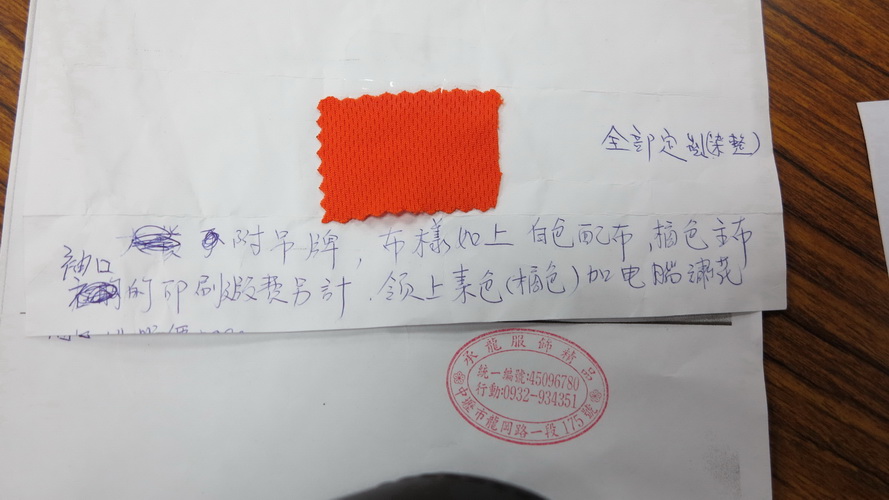 全部定制(染整)
附吊牌，布樣如上 白色配布，橘色主布
袖口
的印刷版費另計．領上素色(橘色)加电腦繡花
承龍服飾精品
統一編號:45096780
行動:0932-934351
中壢市龍岡路一段175號